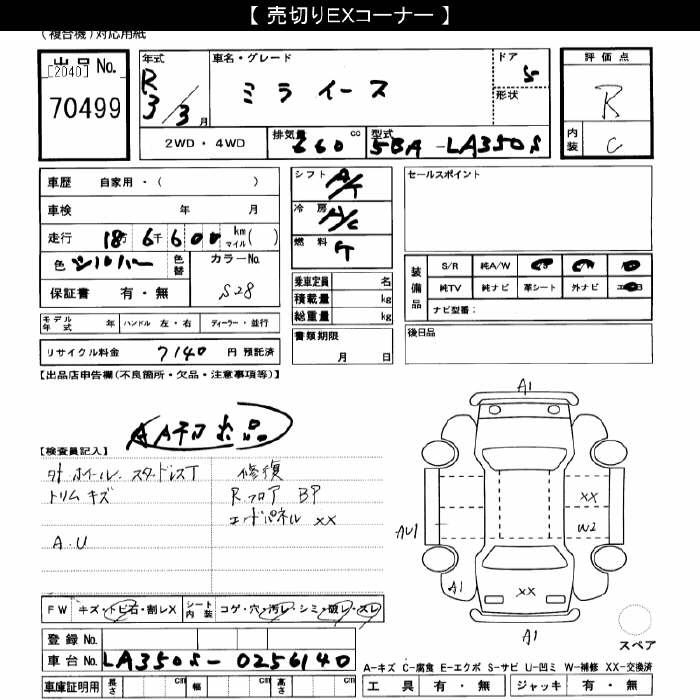 【 売切りEXコーナー 】
(複合機)対応用紙
出品 No.
[2040]
70499
年式
R3/3月
車名・グレード
ミラ イース
ドア
5
形状
2WD・4WD
排気量 660 cc
型式 5BA-LA350S
評価点
R
内装
C
車歴 自家用・( )
車検 年 月
走行 18万 6千 6 0 0 km マイル( )
色 シルバー 色替
カラーNo.
S28
保証書 有・無
モデル年式 年 ハンドル 左・右 ディーラー・並行
リサイクル料金 7140 円 預託済
シフト A/T
冷房 A/C
燃料
乗車定員 名
積載量 kg
総重量 kg
書類期限
月 日
セールスポイント
装備品
S/R 純A/W
純TV 純ナビ 革シート 外ナビ
ナビ型番:
後日品
【出品店申告欄(不良箇所・欠品・注意事項等)】
【検査員記入】
外ホイール. スタッドレスT
トリム キズ
A.U
修復
R.フロア BP
エンドパネル XX
A1
XX
W2
AU1
A1
XX
A1
スペア
FW キズ・トビ石・割レX シート内装 コゲ・穴・汚レ・シミ・破レ・スレ
登録 No.
車台No. LA350S-0256140
車庫証明用 長さ cm 幅 cm 高さ cm
A-キズ C-腐食 E-エクボ S-サビ U-凹ミ W-補修 XX-交換済
工具 有・無 ジャッキ 有・無